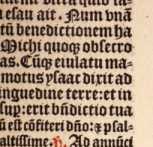 i esau ait. Num vnā
tū benedictionem ha
Michi quoqꝫ obsecro
as. Cūqꝫ eiulatu ma⸗
motus ysaac dixit ad
inguedine terre: et in
sup: erit bn̄dictio tua
ū est cōfiteri dn̄o: ⁊ psal⸗
altissime. Ad annūci